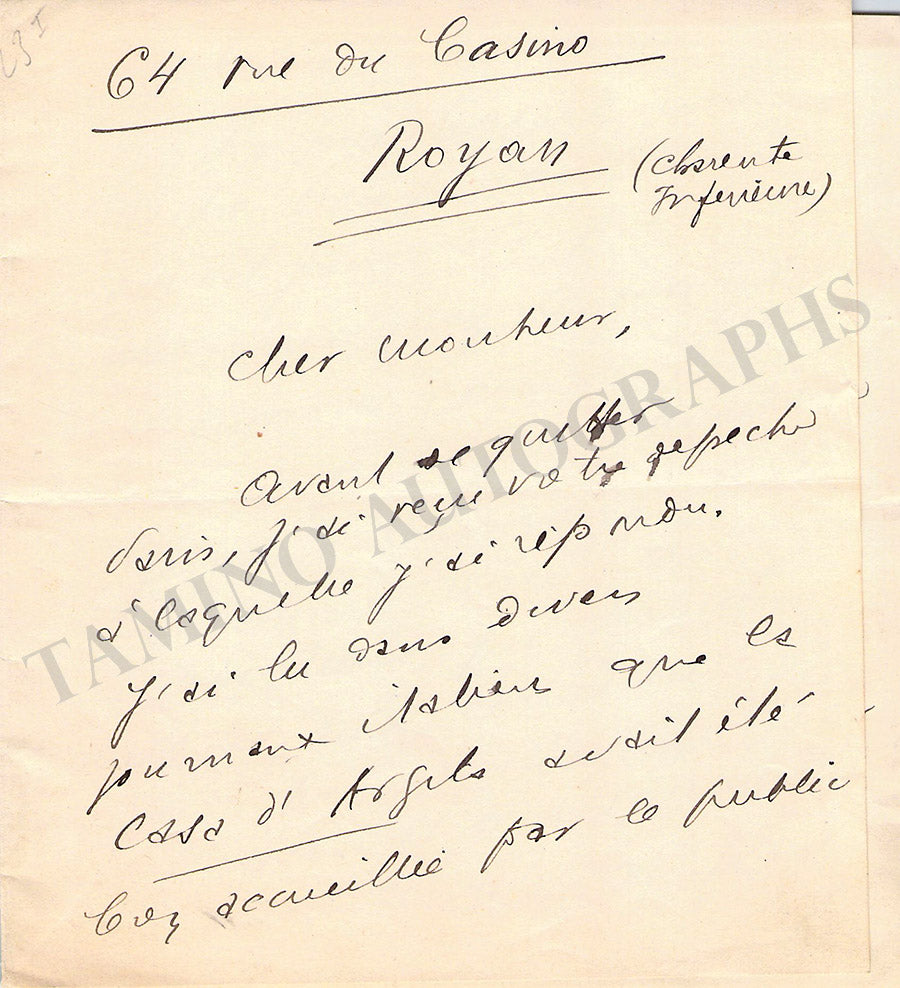 64 rue du Casino
Royan
(Charente
Inferieure)
Cher monsieur,
Avant de quitter
Paris, j'ai reçu votre depeche
à laquelle j'ai répondu.
J'ai lu dans divers
journaux italiens que la
Casa d'Argila avait été
accueillie par le public
TAMINO AUTOGRAPHS